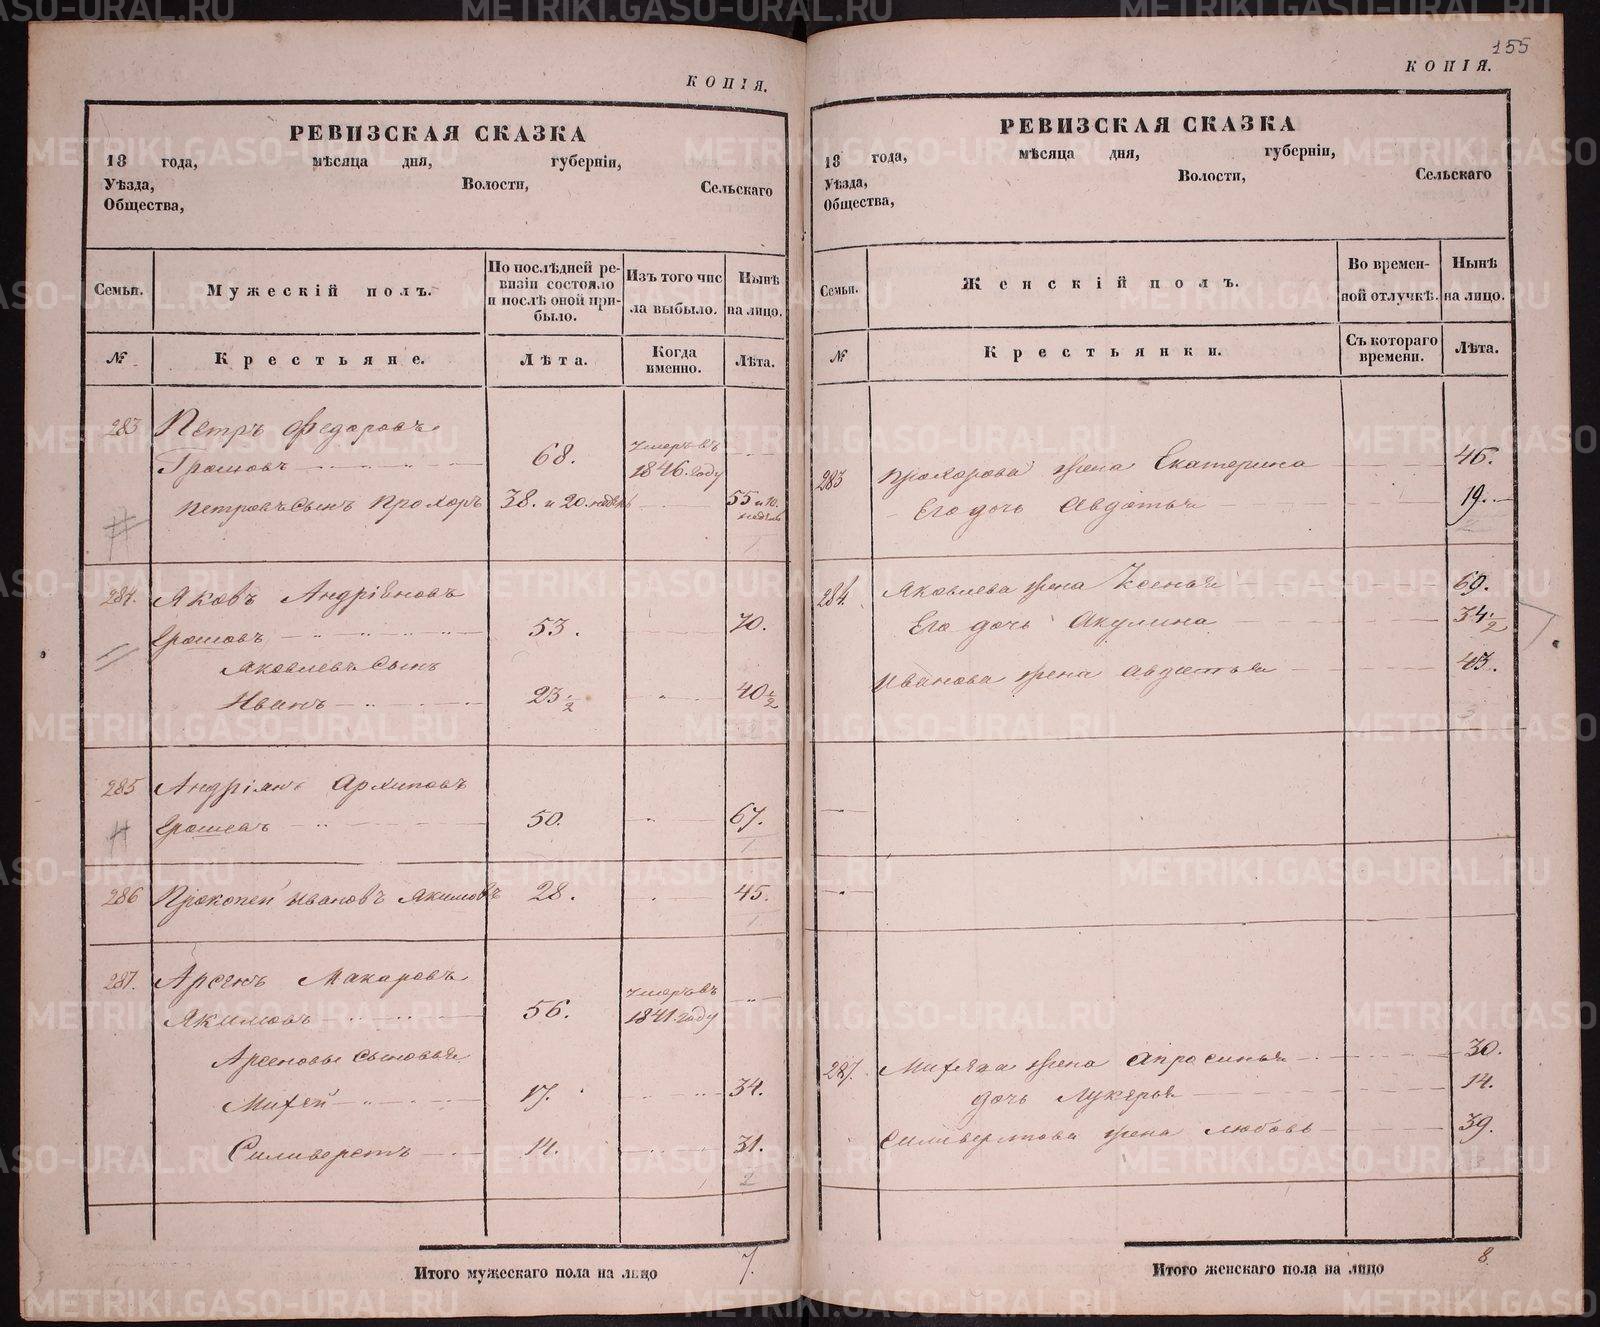 155
КОПІЯ.
РЕВИЗСКАЯ СКАЗКА
18 года, мѣсяца дня, губерніи,
Уѣзда, Волости, Сельскаго
Общества,
Семьи.
Мужескій полъ.
По послѣдней ре-
визіи состояло
и послѣ оной при-
было.
Изъ того чис
ла выбыло.
Нынѣ
на лицо.
№
Крестьяне.
Лѣта.
Когда
именно.
Лѣта.
283 Петръ Федоровъ
Громовъ 68. умеръ въ 1846. году
Петровъ сынъ Прохоръ 38. и 20. недель 55 и 10. недель
1
284. Яковъ Андріяновъ
Ерошовъ 53. 70.
Яковлевъ сынъ
Иванъ 23 1/2 40 1/2
2
285 Андріянъ Архиповъ
Ерошевъ 50. 67.
1
286 Прокопей Ивановъ Якимовъ 28. 45.
1
287. Арсенъ Макаровъ
Якимовъ 56. умеръ въ 1841. году
Арсеновы сыновья
Михей 17. 34.
Силиверстъ 14. 31.
2
Итого мужескаго пола на лицо 7.
КОПІЯ.
РЕВИЗСКАЯ СКАЗКА
18 года, мѣсяца дня, губерніи,
Уѣзда, Волости, Сельскаго
Общества,
Семьи.
Женскій полъ.
Во времен-
ной отлучкѣ.
Нынѣ
на лицо.
№
Крестьянки.
Съ котораго
времени.
Лѣта.
283 Прохорова жена Екатерина 46.
Его дочь Авдотья 19.
284. Яковлева жена Ксенья 69.
Его дочь Акулина 34 1/2
Иванова жена Авдотья 43.
3
287. Михея жена Апросинья 30.
дочь Лукерья 14.
Силиверстова жена Любовь 39.
3
Итого женскаго пола на лицо 8
METRIKI.GASO-URAL.RU